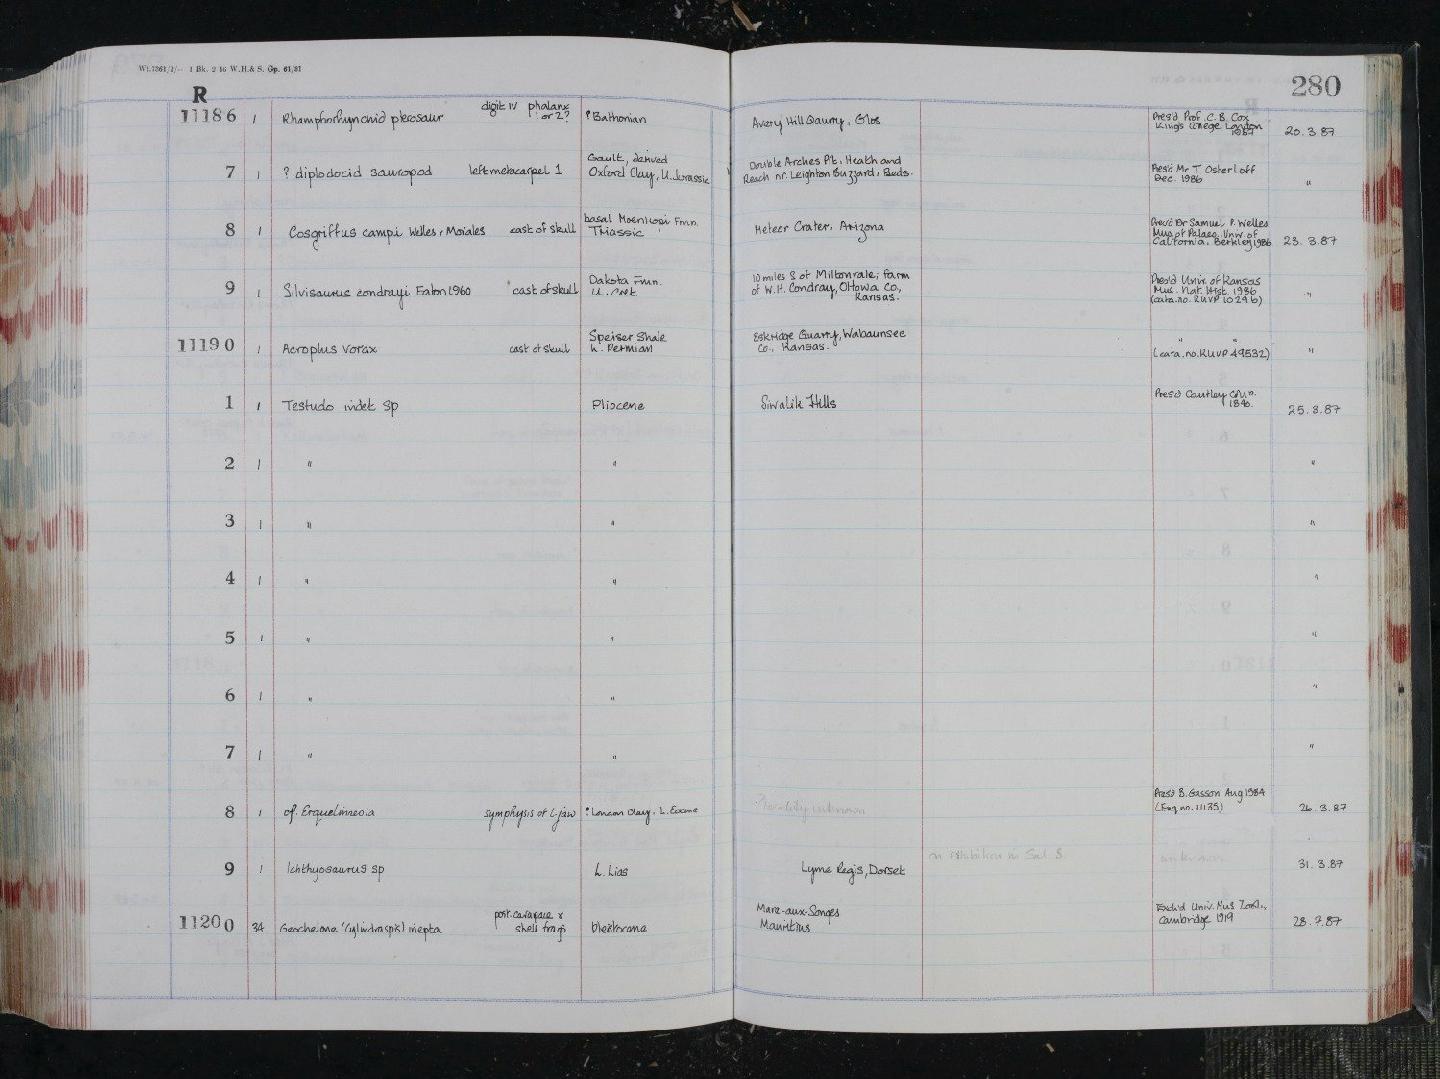 Wt.7361/1/-- 1 Bk. 2 46 W.H.& S. Gp. 61/81
280
R
11186 1 Rhamphorhynchid pterosaur digit IV phalanx or 2? ? Bathonian Avery Hill Qaurry, Glos Pres'd Prof. C. B. Cox
Kings College London 1987 20.3.87
7 1 ? diplodocid sauropod left metacarpel 1 Gault, derived Double Arches Pt. Heath and Pres. Mr T Osterloff
Oxford Clay, U. Jurassic Reach nr. Leighton Buzzard, Beds. Dec. 1986 "
8 1 Cosgriffus campi Welles & Morales cast of skull basal Moenkopi Fmn. Meteer Crater, Arizona Pres'd Dr Samuel P. Welles
Triassic Mus of Palaeo. Univ. of
California, Berkley 1986 23.3.87
9 1 Silvisaurus condrayi Eaton 1960 cast of skull Dakota Fmn. 10 miles S of Miltonvale, farm Pres'd Univ. of Kansas
U. Cret of W.H. Condray, Ottowa Co., Mus. Nat. Hist. 1986
Kansas. (cata.no. KUVP 10296) "
11190 1 Acroplus vorax cast of skull Speiser Shale Eskridge Quarry, Wabaunsee " "
L. Permian Co., Kansas. (cata.no. KUVP 49532) "
1 1 Testudo indet sp Pliocene Siwalik Hills Pres'd Cautley Colln.
1840. 25.3.87
2 1 " " "
3 1 " " "
4 1 " " "
5 1 " " "
6 1 " " "
7 1 " " "
8 1 cf. Erquelinnesia symphysis of L jaw ? London Clay, L. Eocene locality unknown Pres'd B. Gasson Aug 1984
26.3.87
9 1 Ichthyosaurus sp L. Lias Lyme Regis, Dorset on exhibition in Gal. 8 31.3.87
11200 34 Geochelone (Cylindraspis) inepta post. carapace & shell frag Pleistocene Mare-aux-Songes Exch'd Univ. Mus Zool.,
Mauritius Cambridge 1919 28.7.87